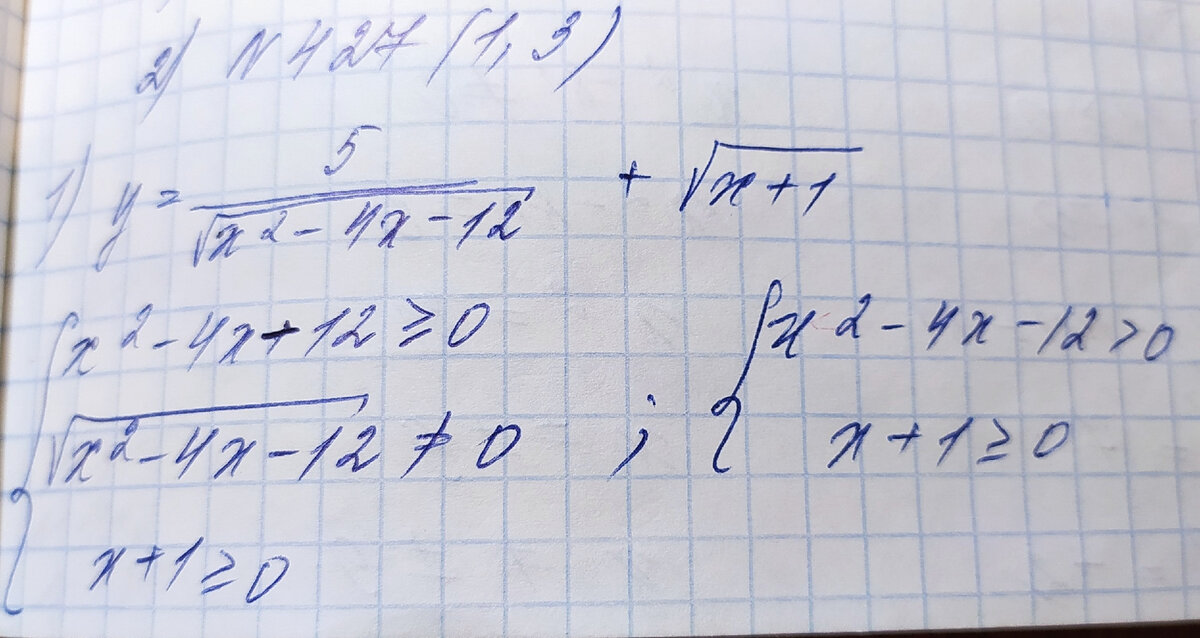 2) N 427 (1, 3)
1) y = 5/√(x² - 4x - 12) + √(x + 1)
{ x² - 4x - 12 ≥ 0
√(x² - 4x - 12) ≠ 0
x + 1 ≥ 0 ;
{ x² - 4x - 12 > 0
x + 1 ≥ 0